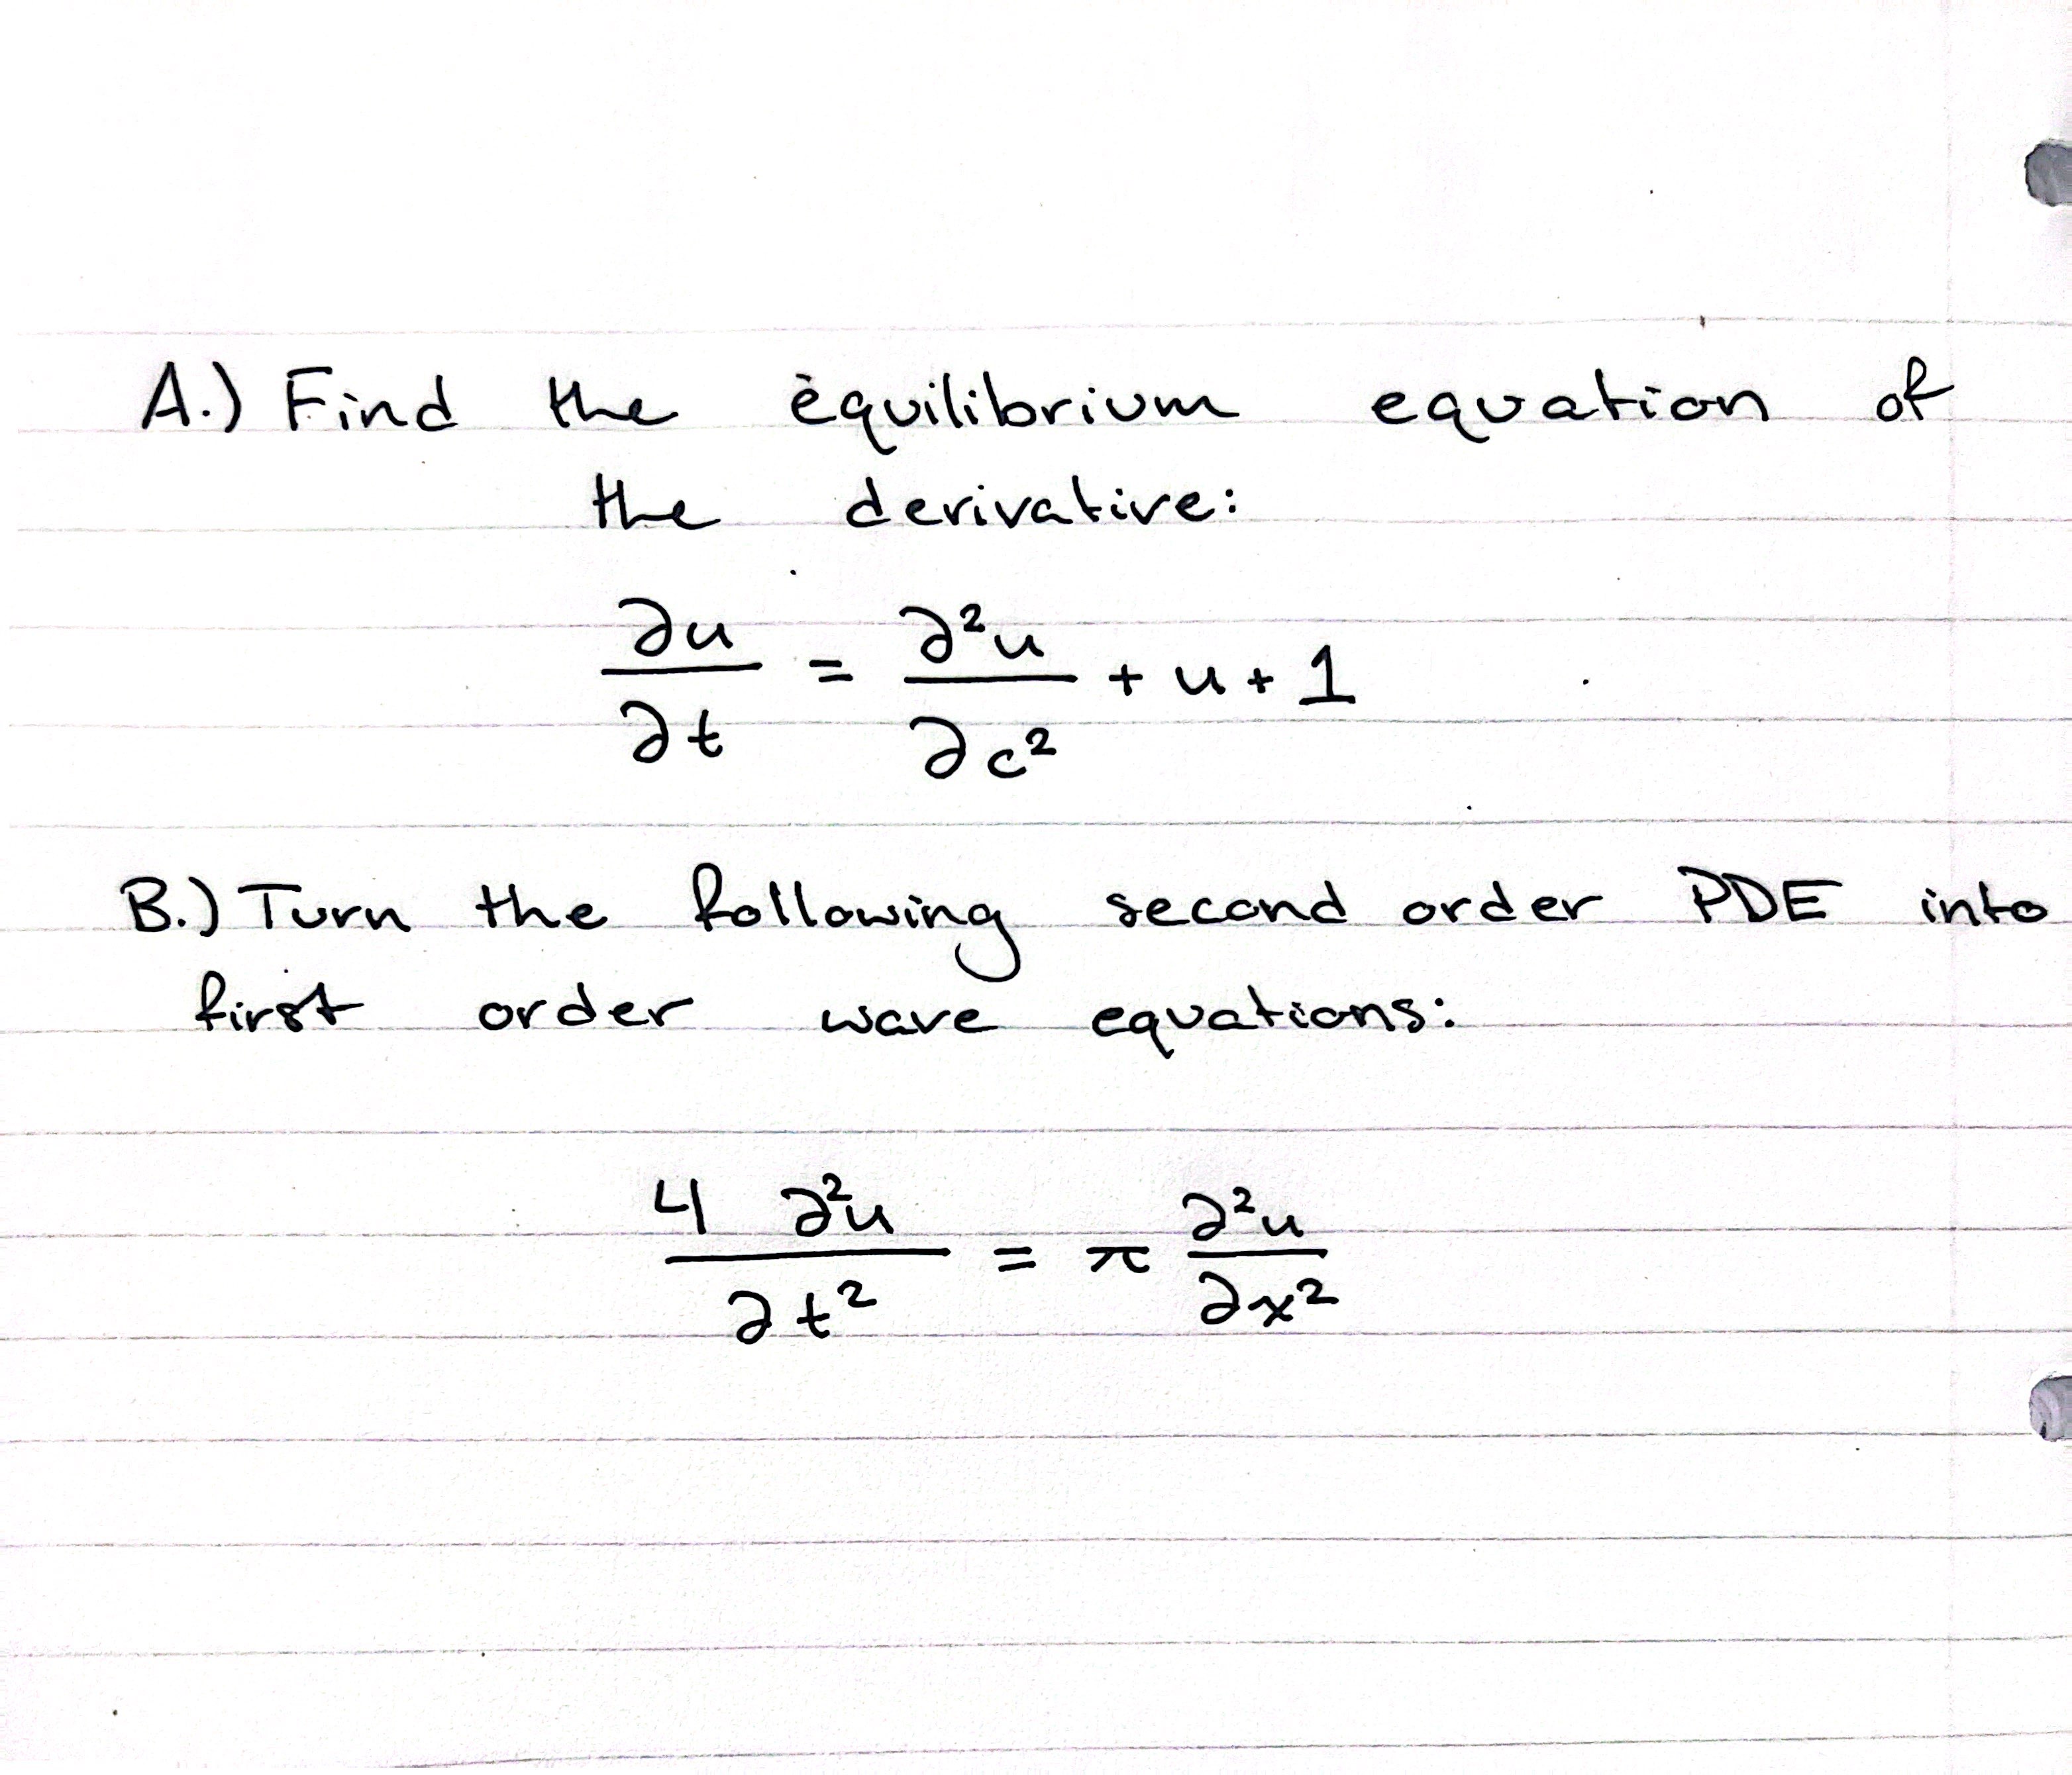 A.) Find the equilibrium equation of
the derivative:
∂u/∂t = ∂²u/∂c² + u + 1
B.) Turn the following second order PDE into
first order wave equations:
4 ∂²u/∂t² = π ∂²u/∂x²